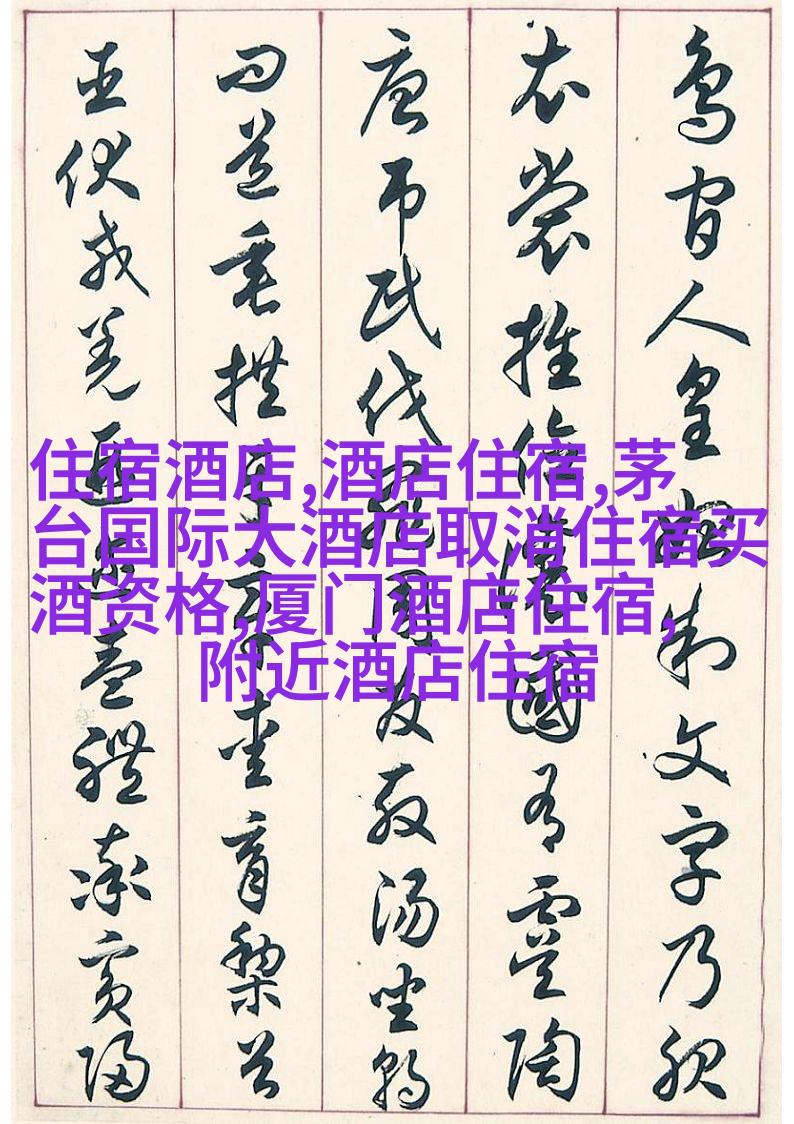 鳥官人皇始制文字乃服
衣裳推位讓國有虞陶
唐弔民伐罪周發殷湯坐朝
問道垂拱平章愛育黎首
臣伏戎羌遐邇壹體率賓歸
住宿酒店,酒店住宿,茅
台国际大酒店取消住宿买
酒资格,厦门酒店住宿,
附近酒店住宿